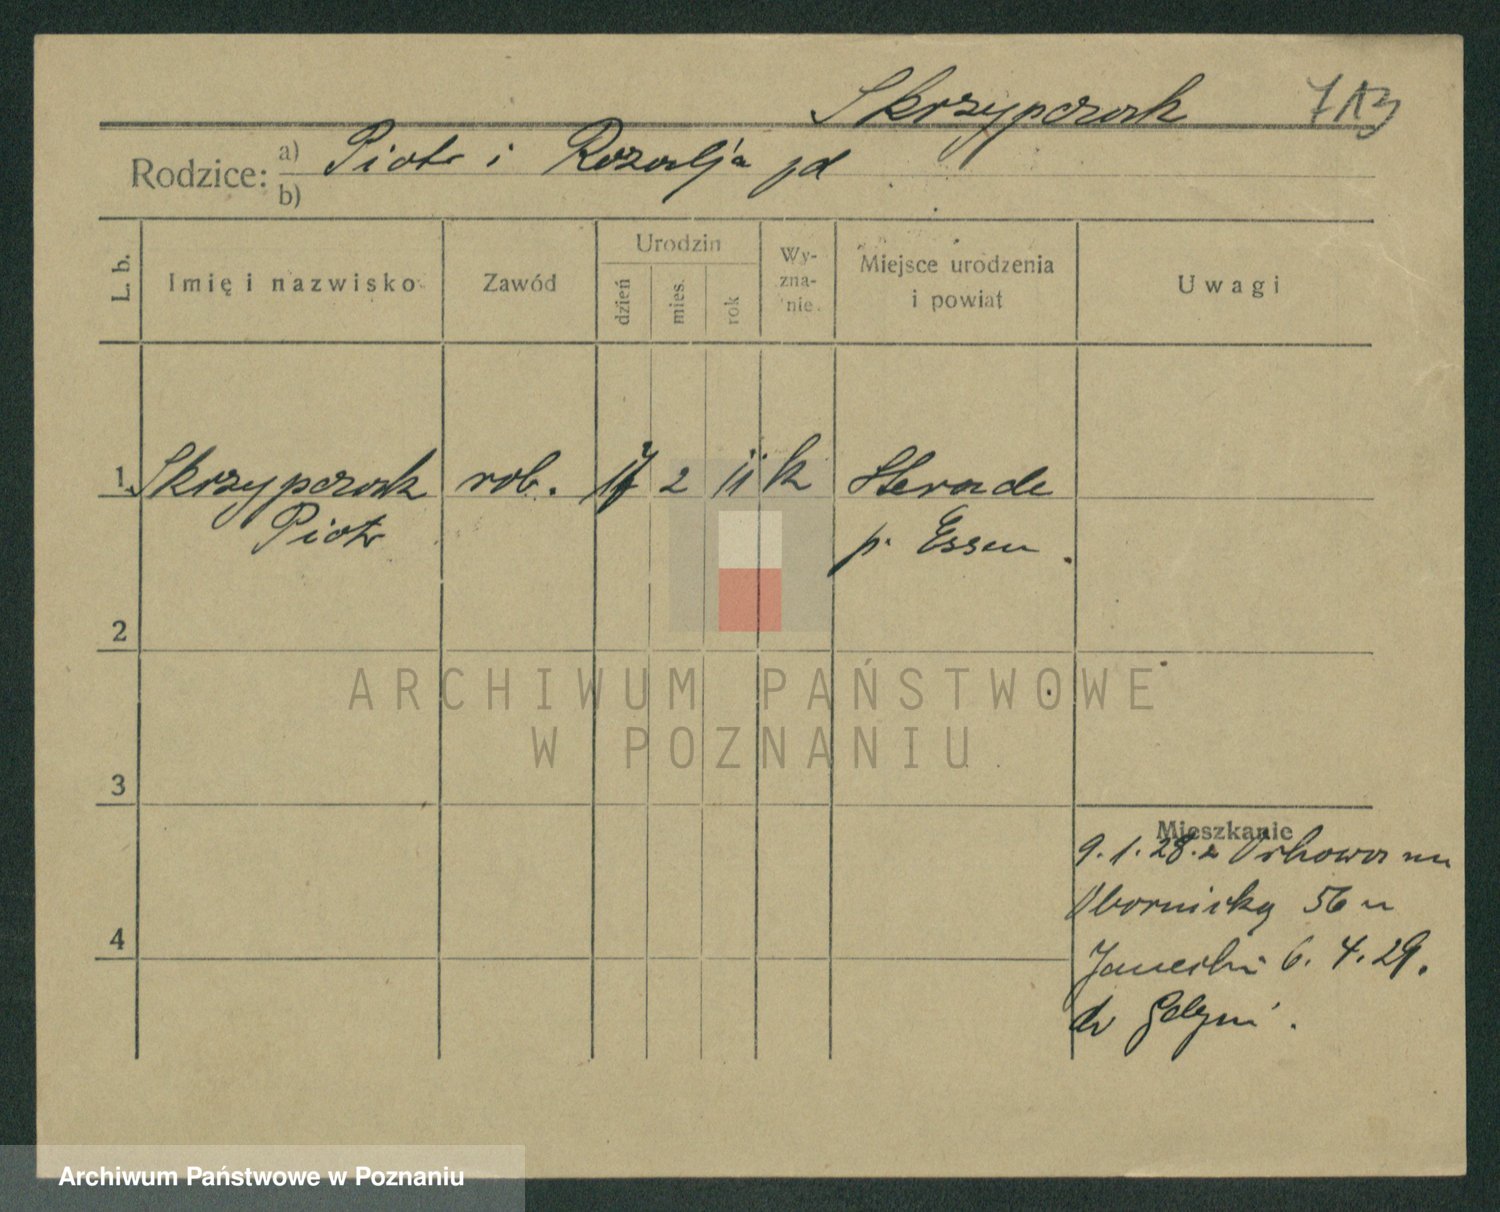 Skrzypczak 713
Rodzice: a) Piotr i Rozalja jd
b)
L. b. Imię i nazwisko Zawód Urodzin dzień mies. rok Wyznanie Miejsce urodzenia i powiat Uwagi
1 Skrzypczak rob. 2 11 k Sterade
Piotr p. Essen
2
ARCHIWUM PAŃSTWOWE
W POZNANIU
3
Mieszkanie
9.1.28. z Orhowa na
Obornicką 56 u
6.4.29.
do Gdyni.
4
Archiwum Państwowe w Poznaniu